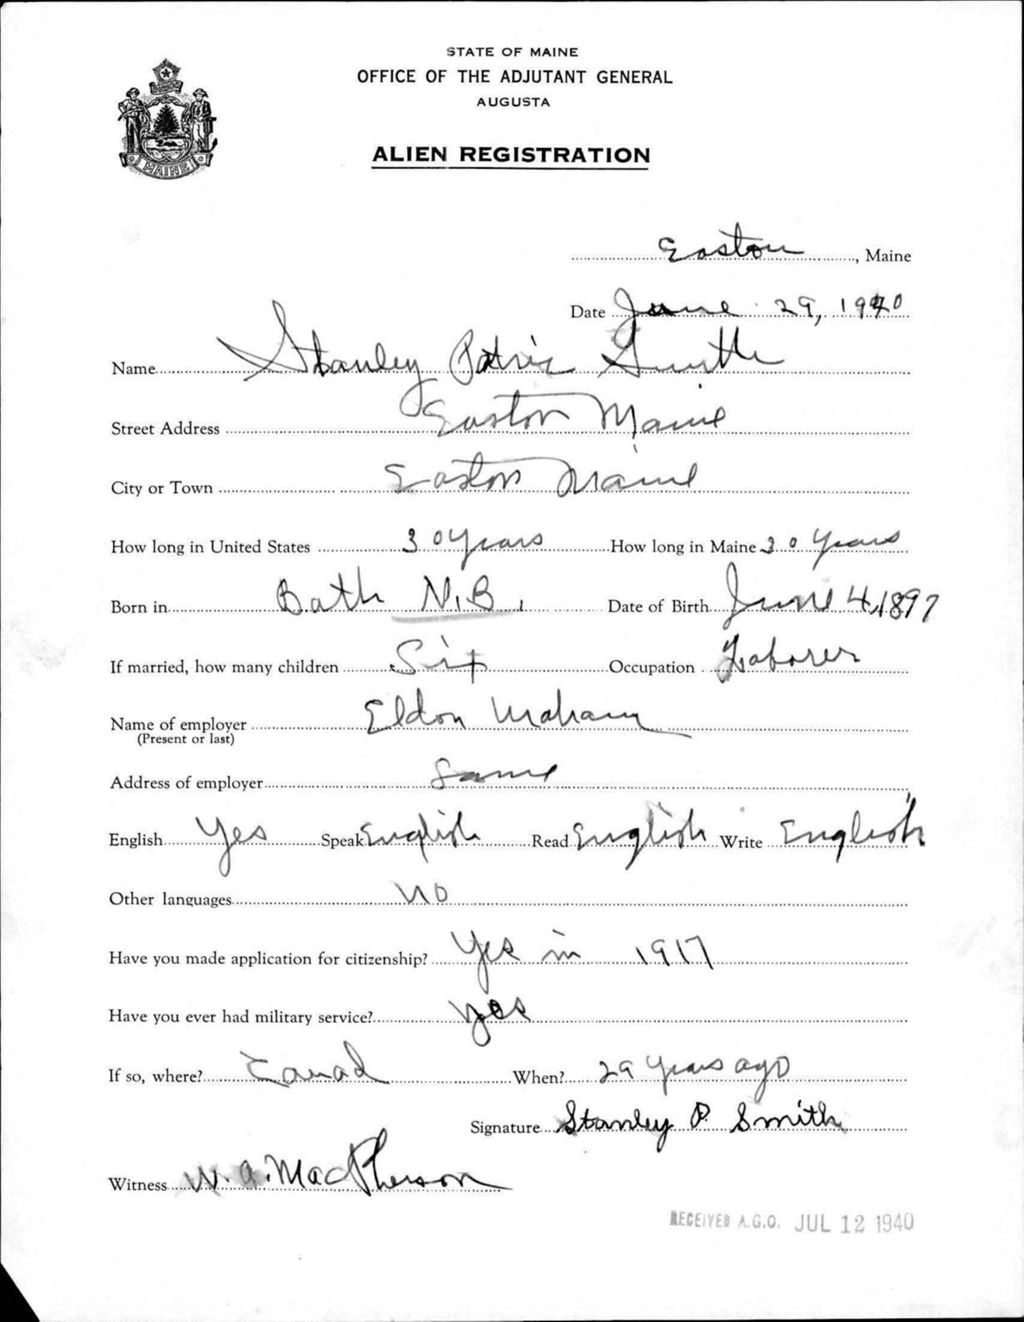 STATE OF MAINE
OFFICE OF THE ADJUTANT GENERAL
AUGUSTA
ALIEN REGISTRATION
MAINE
Easton, Maine
Date June 29, 1940
Name Stanley Patric Smith
Street Address Easton Maine
City or Town Easton Maine
How long in United States 30 years How long in Maine 30 years
Born in Bath N.B. Date of Birth June 4, 1897
If married, how many children Six Occupation Laborer
Name of employer Eldon
(Present or last)
Address of employer Same
English Yes Speak English Read English Write English
Other languages no
Have you made application for citizenship? Yes in 1917
Have you ever had military service? Yes
If so, where? Canad When? 29 years ago
Signature Stanley P. Smith
Witness W. A. MacPherson
RECEIVED A.G.O. JUL 12 1940